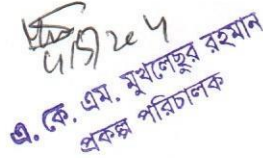 এ. কে. এম. মুখলেছুর রহমান
প্রকল্প পরিচালক